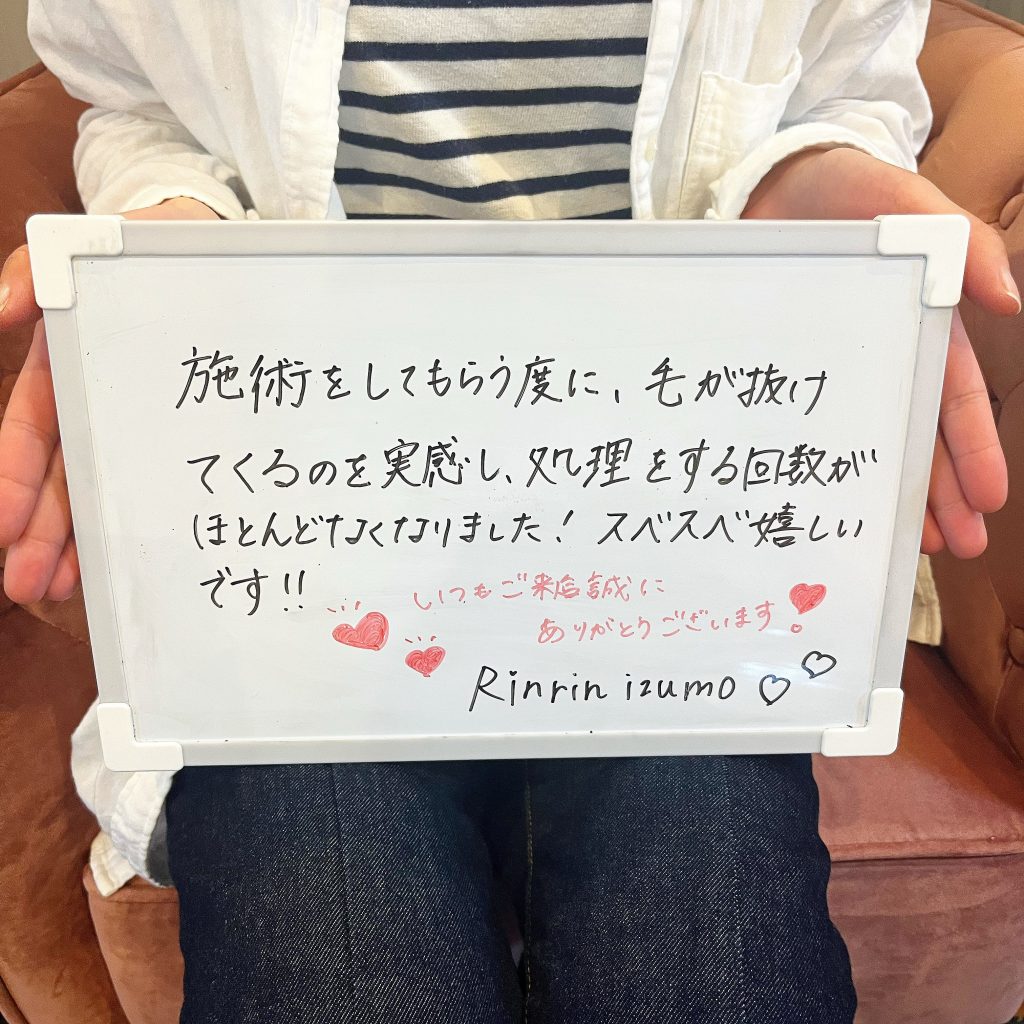 施術をしてもらう度に、毛が抜け
てくるのを実感し、処理をする回数が
ほとんどなくなりました！スベスベ嬉しい
です!!
いつもご来店誠に
ありがとうございます
Rinrin izumo